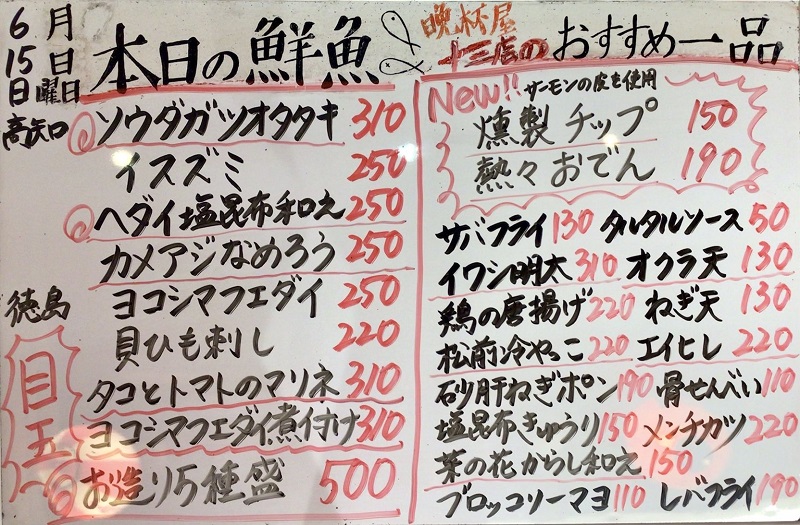 6月
15日
日曜日
本日の鮮魚
高知
ソウダガツオタタキ 310
イスズミ 250
ヘダイ塩昆布和え 250
カメアジなめろう 250
徳島
ヨコシマフエダイ 250
貝ひも刺し 220
目玉
タコとトマトのマリネ 310
ヨコシマフエダイ煮付け 310
お造り5種盛 500
晩杯屋
十三店の おすすめ一品
New!! サーモンの皮を使用
燻製チップ 150
熱々おでん 190
サバフライ 130 タルタルソース 50
イワシ明太 310 オクラ天 130
鶏の唐揚げ 220 ねぎ天 130
松前冷やっこ 220 エイヒレ 220
砂肝ねぎポン 190 骨せんべい 110
塩昆布きゅうり 150 メンチカツ 220
菜の花からし和え 150
ブロッコリーマヨ 110 レバフライ 190